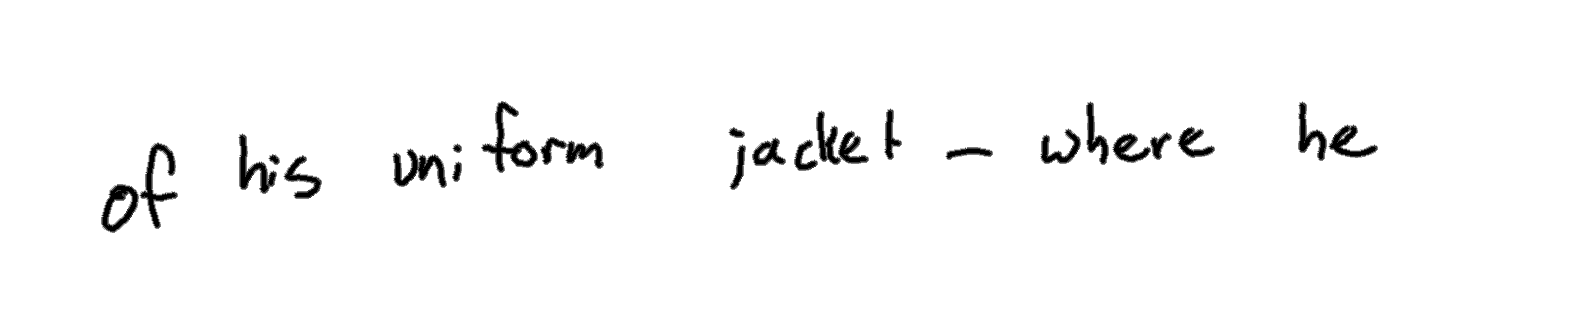 of his uniform jacket - where he